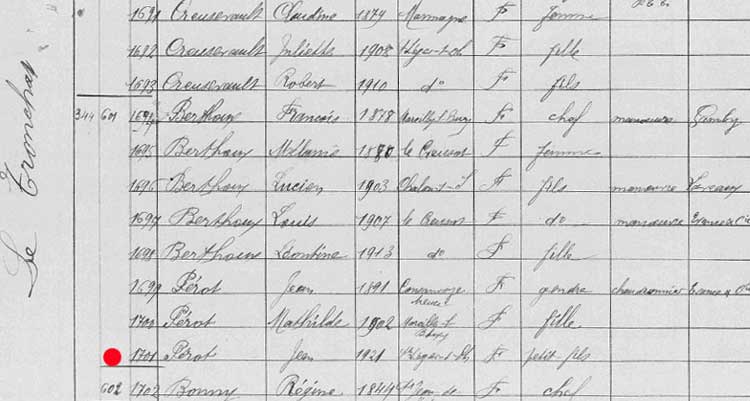 Le Tronchat
1691 Creuserault Claudine 1879 Marmagne F femme
1692 Creuserault Juliette 1908 F fille
1693 Creuserault Robert 1910 do F fils
344 601 1694 Berthoux Francois 1878 F chef manoeuvre
1695 Berthoux Mélanie 1880 le Creusot F femme
1696 Berthoux Lucien 1903 Chalon s S F fils manoeuvre
1697 Berthoux Louis 1907 le Creusot F do manoeuvre
1698 Berthoux Léontine 1913 do F fille
1699 Pérot Jean 1891 F gendre chaudronnier
1700 Pérot Mathilde 1902 F fille
1701 Pérot Jean 1921 F petit fils
602 1702 Bonny Régine 1844 F chef